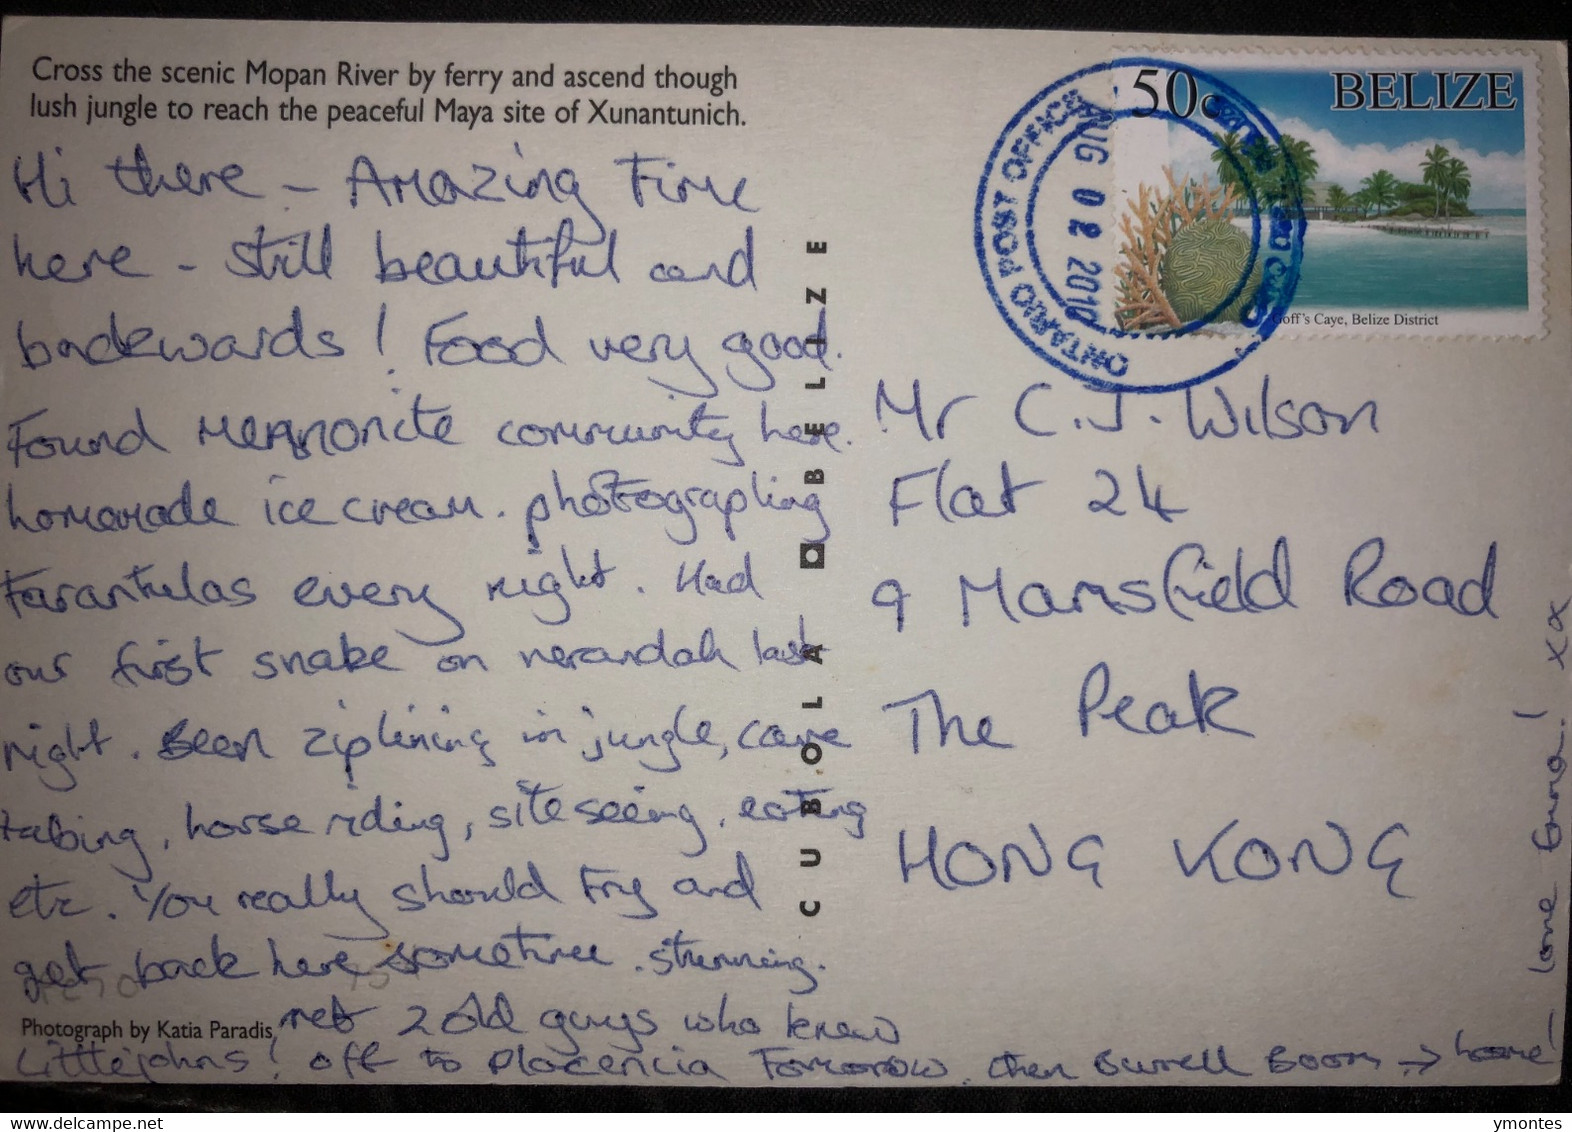 Cross the scenic Mopan River by ferry and ascend though
lush jungle to reach the peaceful Maya site of Xunantunich.
Hi there - Amazing Time
here - still beautiful and
backwards! Food very good.
Found Mennonite community here.
homemade ice cream. photographing
tarantulas every night. Had
our first snake on verandah last
night. Been ziplining in jungle, cave
tubing, horse riding, siteseeing, eating
etc. You really should try and
get back here sometime. stunning.
met 2 old guys who knew
Photograph by Katia Paradis
Littlejohns! off to Placencia Tomorrow. then Burrell Boom → home!
love Emma! xx
CUBOLA BELIZE
50c BELIZE
Goff's Caye, Belize District
ONTARIO POST OFFICE
AUG 02 2010
Mr C.J. Wilson
Flat 24
9 Mansfield Road
The Peak
HONG KONG
ymontes